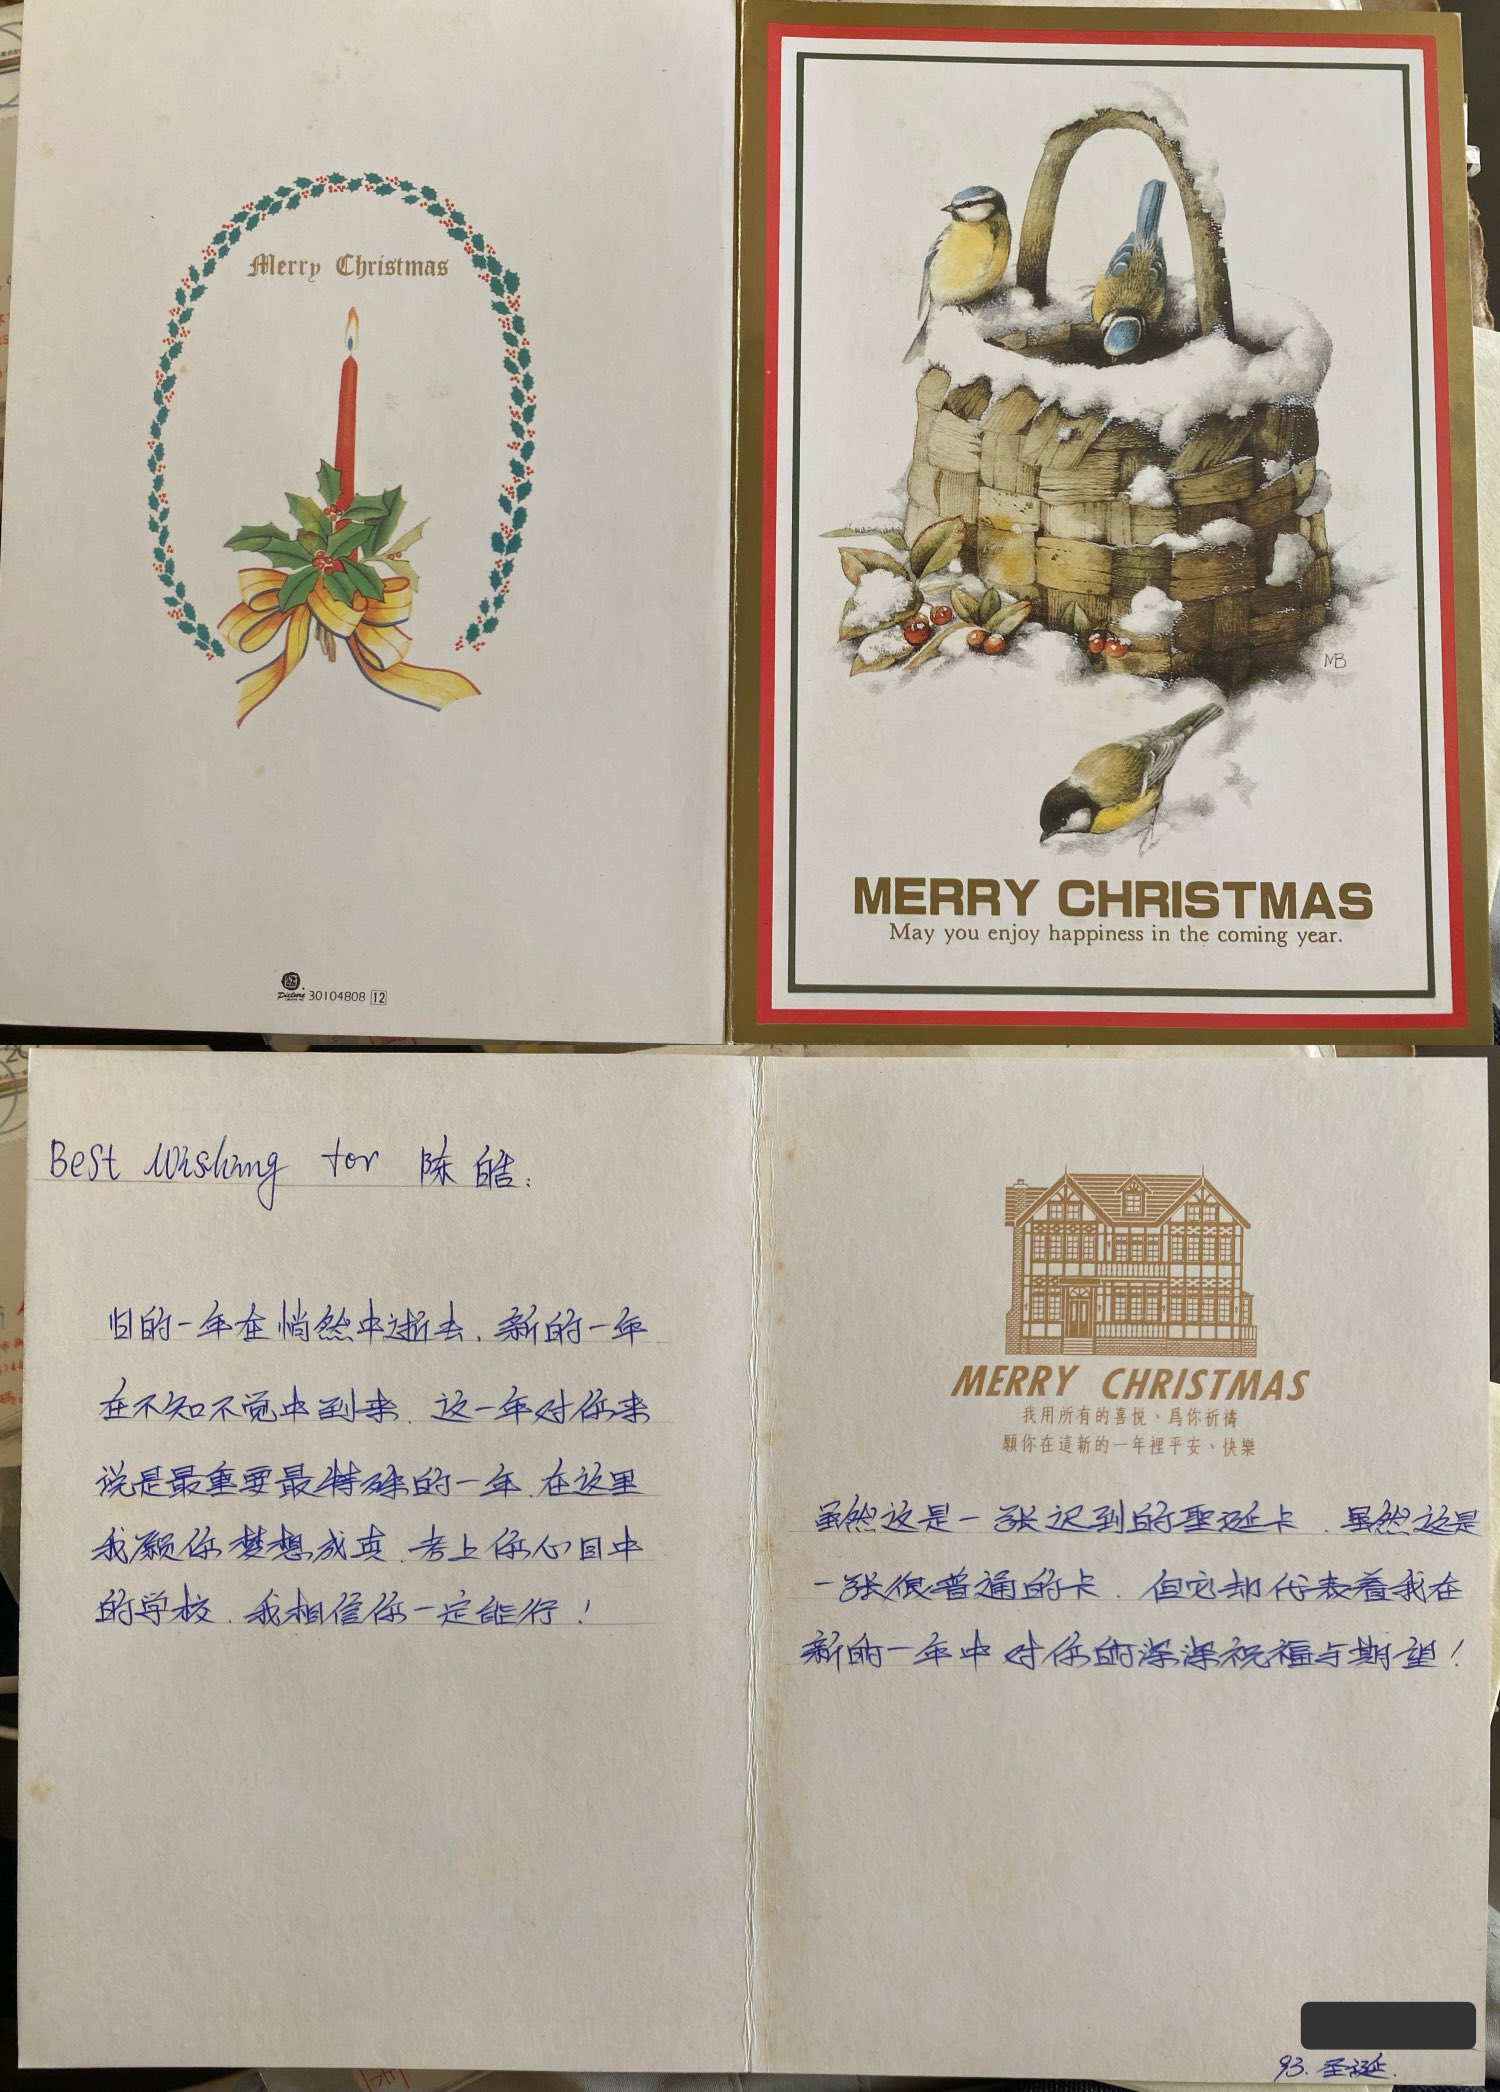 Merry Christmas
Picture 30104808 12
MB
MERRY CHRISTMAS
May you enjoy happiness in the coming year.
Best Wishing for 陈皓：
旧的一年在悄然中逝去，新的一年
在不知不觉中到来，这一年对你来
说是最重要最特殊的一年，在这里
我愿你梦想成真，考上你心目中
的学校，我相信你一定能行！
MERRY CHRISTMAS
我用所有的喜悅、爲你祈禱
願你在這新的一年裡平安、快樂
虽然这是一张迟到的圣诞卡，虽然这是
一张很普通的卡，但它却代表着我在
新的一年中对你的深深祝福与期望！
93.圣诞.